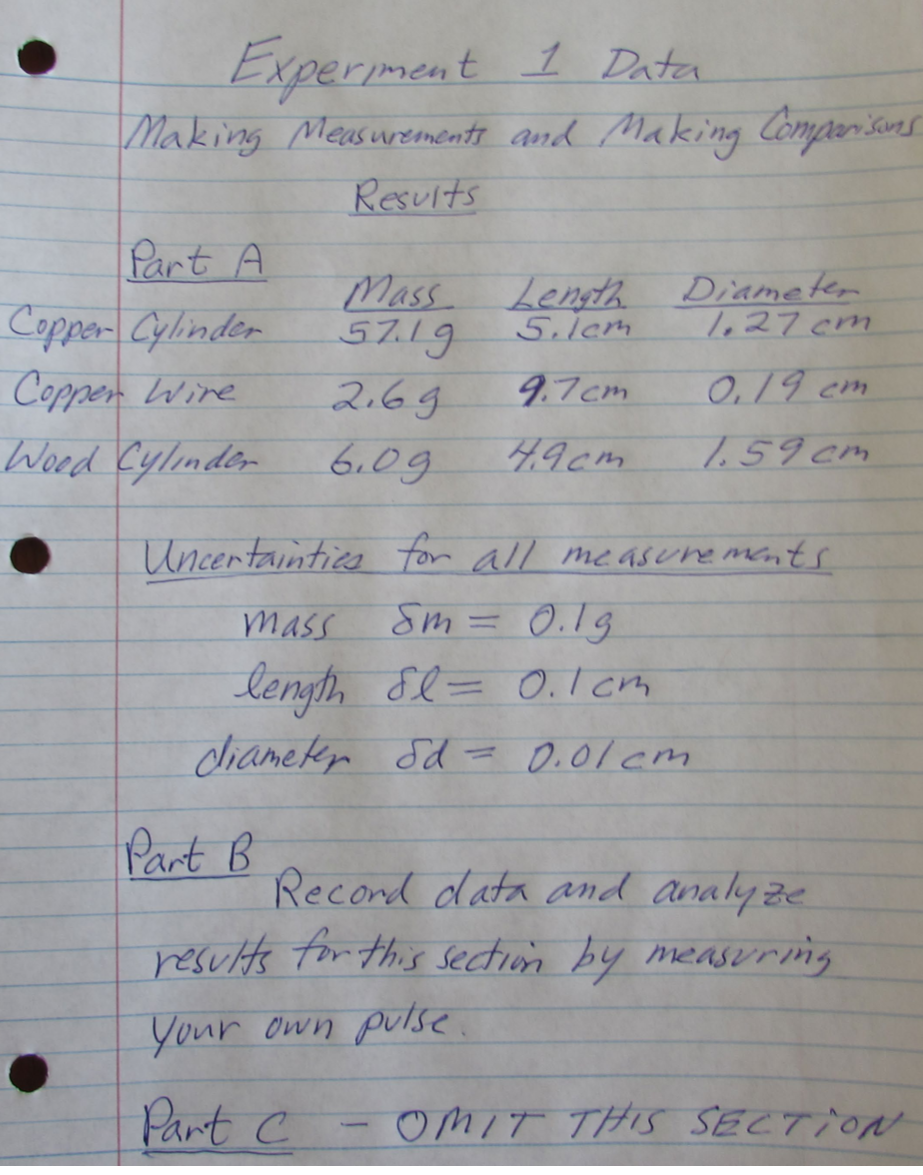 Experiment 1 Data
Making Measurements and Making Comparisons
Results
Part A
Mass Length Diameter
Copper Cylinder 57.1g 5.1cm 1.27 cm
Copper Wire 2.6g 9.7cm 0.19 cm
Wood Cylinder 6.0g 4.9cm 1.59 cm
Uncertainties for all measurements
mass δm = 0.1g
length δl = 0.1cm
diameter δd = 0.01cm
Part B
Record data and analyze
results for this section by measuring
your own pulse.
Part C - OMIT THIS SECTION